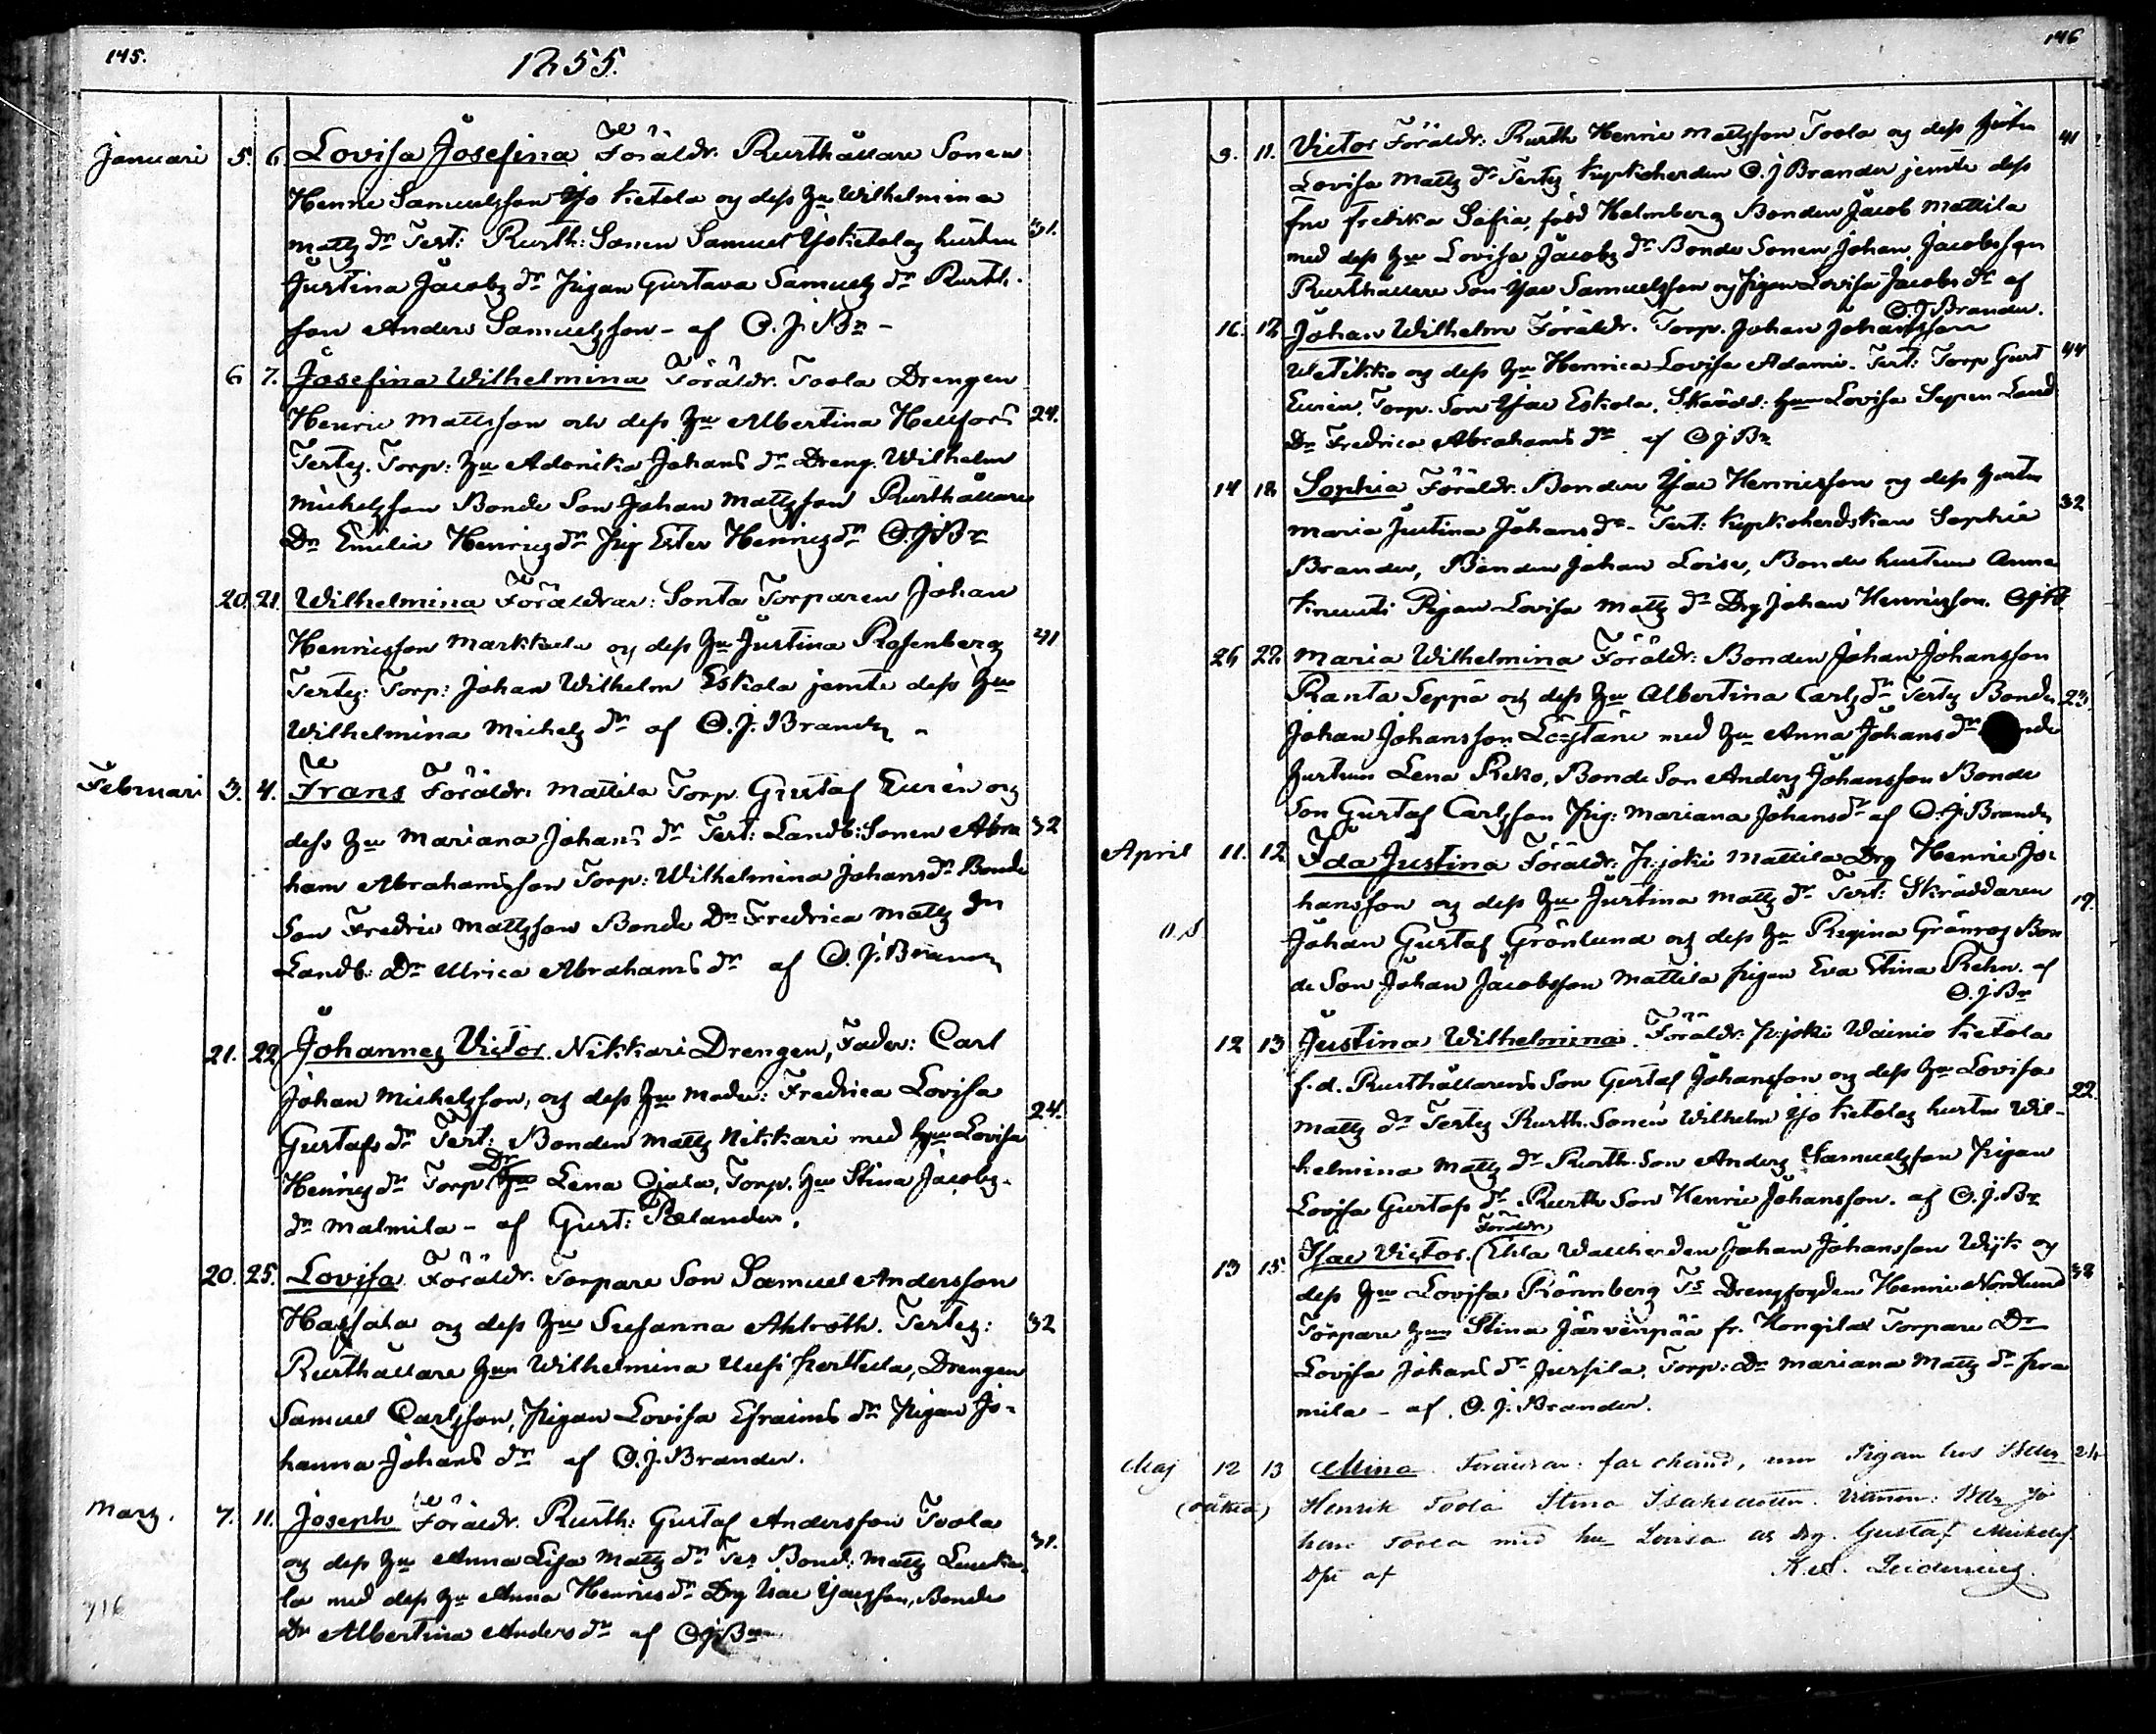 145.
1855.
Januari 5. 6 Lovisa Josefina Föräldr. Rusthållare Sonen
Henric Samuelsson Yjo Ketola og dess Hu Wilhelmina
Matts dr Test: Rusth: Sonen Samuel Yjoketolas hustru 31.
Justina Jacobs dr Pigan Gustava Samuels dr Rusth.
son Anders Samuelsson - af O. J. Br -
6 7. Josefina Wilhelmina Föräldr. Toola Drengen
Henric Mattsson och dess Hu Albertina Hellfors 24.
Testes. Torp: Hu Adonika Johans dr Dreng. Wilhelm
Michelsson Bonde Son Johan Mattsson Rusthållare
Dr Emilia Henrics dr Pig Ester Henrics dr O. J Br
20. 21. Wilhelmina Föräldrar: Sonta Torparen Johan
Henricsson Markkula og dess Hu Justina Rosenberg 41
Testes: Torp: Johan Wilhelm Eskola jemte dess Hu
Wilhelmina Michels dr af O. J. Brander
Februari 3. 4. Frans Föräldr. Mattila Torp. Gustaf Eurén og
dess Hu Mariana Johans dr Test: Landb: Sonen Abra 32
ham Abrahamsson Torp: Wilhelmina Johans dr Bonde
Son Fredric Mattsson Bonde Dr Fredrica Matts dr
Landb: Dr Ulrica Abrahams dr af O. J. Brander
21. 22 Johannes Victor. Nikkari Drengen, Fader: Carl
Johan Michelsson, og dess Hu Moder: Fredrica Lovisa
Gustafs dr Test: Bonden Matts Nikkari med Hu Lovisa 24.
Henrics dr Torp. Dr Lena Ojala, Torp. Hu Stina Jacobs
dr Malmila - af Gust: Polander.
20. 25. Lovisa Föräldr. Torpare Son Samuel Andersson
Hassala og dess Hu Susanna Ahlroth. Testes: 32
Rusthållare Hun Wilhelmina Uusi Perttula, Drengen
Samuel Carlsson, Pigan Lovisa Efraims dr Pigan Jo-
hanna Johans dr af O. J. Brander.
Marz. 7. 11. Joseph Föräldr. Rusth: Gustaf Andersson Toola
og dess Hu Anna Lisa Matts dr Tes Bond: Matts 31.
la med dess Hu Anna Henrics dr Drg Isac Isacsson, Bonde
Dr Albertina Anders dr af O J Br
716
146
9. 11. Victor Föräldr: Rusth Henric Mattsson Toola og dess Hustru 41
Lovisa Matts dr Testes Kyrkoherden O. J Brander jemte dess
Fru Fredrika Sofia, född Holmberg Bonden Jacob Mattila
med dess Hu Lovisa Jacobs dr Bonde Sonen Johan Jacobsson
Rusthållare Son Isac Samuelsson og Pigan Lovisa Jacobs dr af
O. J Brander.
16. 18 Johan Wilhelm Föräldr. Torp. Johan Johansson
Wetikko og dess Hu Henrica Lovisa Adams. Test: Torp Gust 44
Eurén, Torp. Son Isac Eskola, Skrädd: Hun Lovisa Sepen Land
Dr Fredrica Abrahams dr af O J Br
14 18 Sophia Föräldr. Bonden Isac Henricsson og dess Hustru
Maria Justina Johans dr - Test: Kyrkoherdskan Sophia 32
Brander, Bonden Johan Loise, Bonde hustrun Anna
Pigan Lovisa Matts dr Drg Johan Henricsson. O J B
26 27. Maria Wilhelmina Föräldr: Bonden Johan Johansson
Ranta Seppä og dess Hu Albertina Carls dr Testes Bonden 23.
Johan Johansson med Hu Anna Johans dr
hustrun Lena Reko, Bonde Son Anders Johansson Bonde
Son Gustaf Carlsson Pig: Mariana Johans dr af O. J. Brander
April 11. 12 Ida Justina Föräldr. P:joki Mattila Drg Henric Jo-
hansson og dess Hu Justina Matts dr Test: Skräddaren 17.
Johan Gustaf Grönlund og dess Hu Regina Grönros Bon
de Son Johan Jacobsson Mattila Pigan Eva Stina Rehn. af
O. J. Br
12 13 Justina Wilhelmina. Föräldr. P:joki Wainio Ketola
f.d. Rusthållarens Son Gustaf Johansson og dess Hu Lovisa
Matts dr Testes Rusth. Sonen Wilhelm Yjo Ketolas hustru Wil- 22
helmina Matts dr Rusth. Son Anders Samuelsson Pigan
Lovisa Gustafs dr Rusth Son Henric Johansson. af O. J. Br
13 15 Isac Victor. (Föräldr) Wallherden Johan Johansson Wijk og 38
dess Hu Lovisa Rönnberg Ts Drengfogden Henric Nordlund
Torpare Hun Stina Järvenpää fr. Hongila Torpare Dr
Lovisa Johans dr Jussila, Torp: Dr Mariana Matts dr Pra
mila - af. O. J. Brander.
Maj 12 13 Mina. Föräldrar: far okänd, mor Pigan hos
(oäkta) Henrik Toola Stina Isaksdotter. Vittnen: Jo
han Toola med hu Lovisa Drg. Gustaf
Dpt af